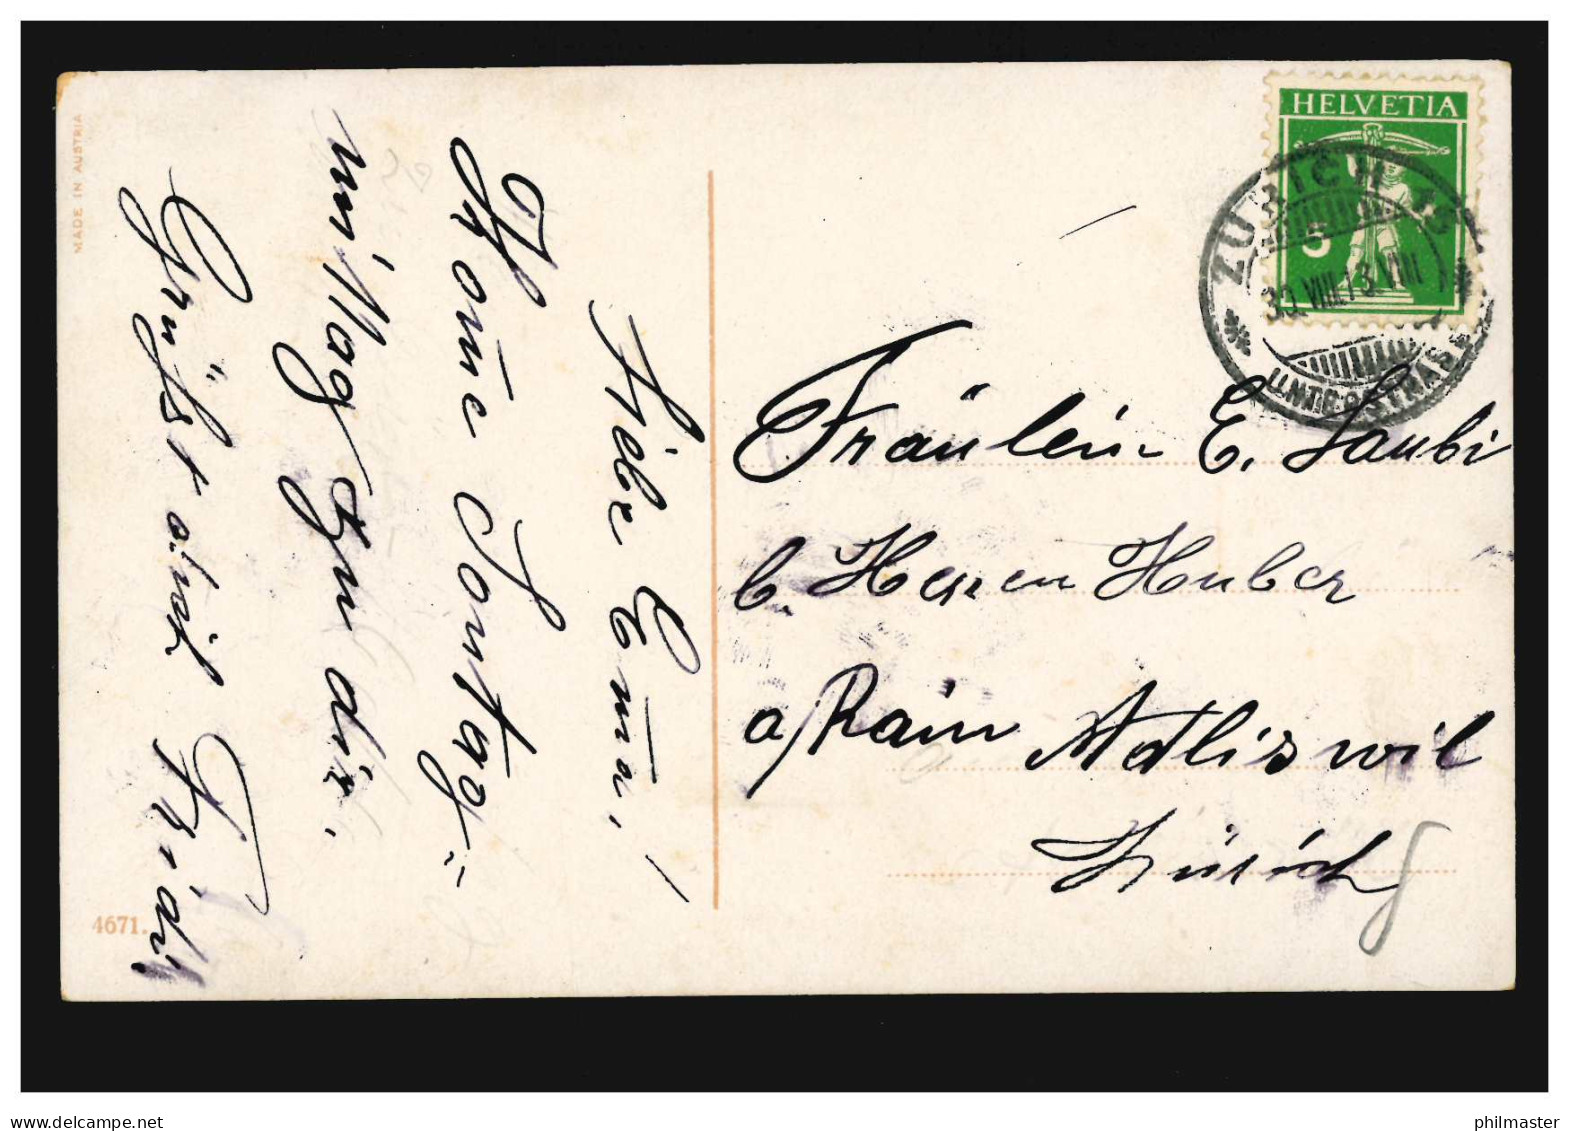 MADE IN AUSTRIA
Liebe Em̄a!
Kom̄e Sontag-
mittag zu dir.
Grüsst dich Trödi
4671.
HELVETIA
5
ZÜRICH
30.VIII.13.VIII
Fräulein E. Laubi
b. Herren Huber
a/Rain Adliswil
Zürich
www.delcampe.net
philmaster